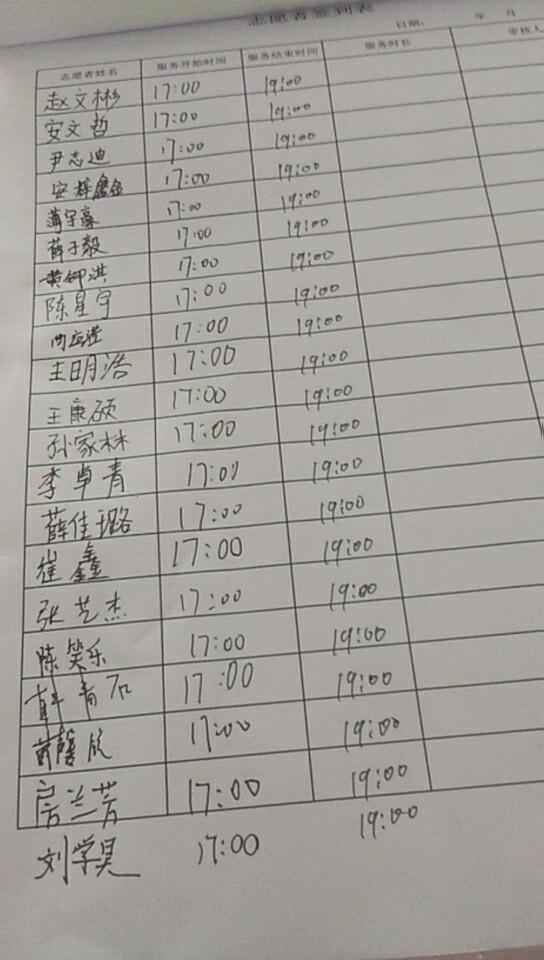 志愿者签到表
日期: 年 月
志愿者姓名 服务开始时间 服务结束时间 服务时长 审核人
赵文彬 17:00 19:00
安文哲 17:00 19:00
尹志迪 17:00 19:00
安辉鑫 17:00 19:00
薄宇豪 17:00 19:00
薛子毅 17:00 19:00
黄御淇 17:00 19:00
陈星宇 17:00 19:00
17:00 19:00
王明浩 17:00 19:00
王康硕 17:00 19:00
孙家林 17:00 19:00
李卓青 17:00 19:00
薛佳璐 17:00 19:00
崔鑫 17:00 19:00
张艺杰 17:00 19:00
陈笑乐 17:00 19:00
青石 17:00 19:00
欣 17:00 19:00
房兰芳 17:00 19:00
刘学昊 17:00 19:00